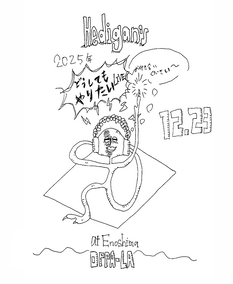 Hedigan's
2025年
どうしても
やりたいLIVE
12.23
at Enoshima
OPPA-LA